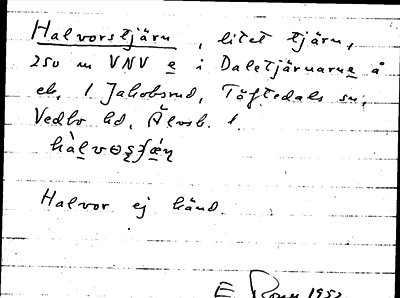 Halvorstjärn, litet tjärn,
250 m VNV e i Daletjärnarne å
ek. 1 Jakobsrud, Töftedals sn,
Vedbo hd, Älvsb. l.
Halvor ej känd.
E 1952